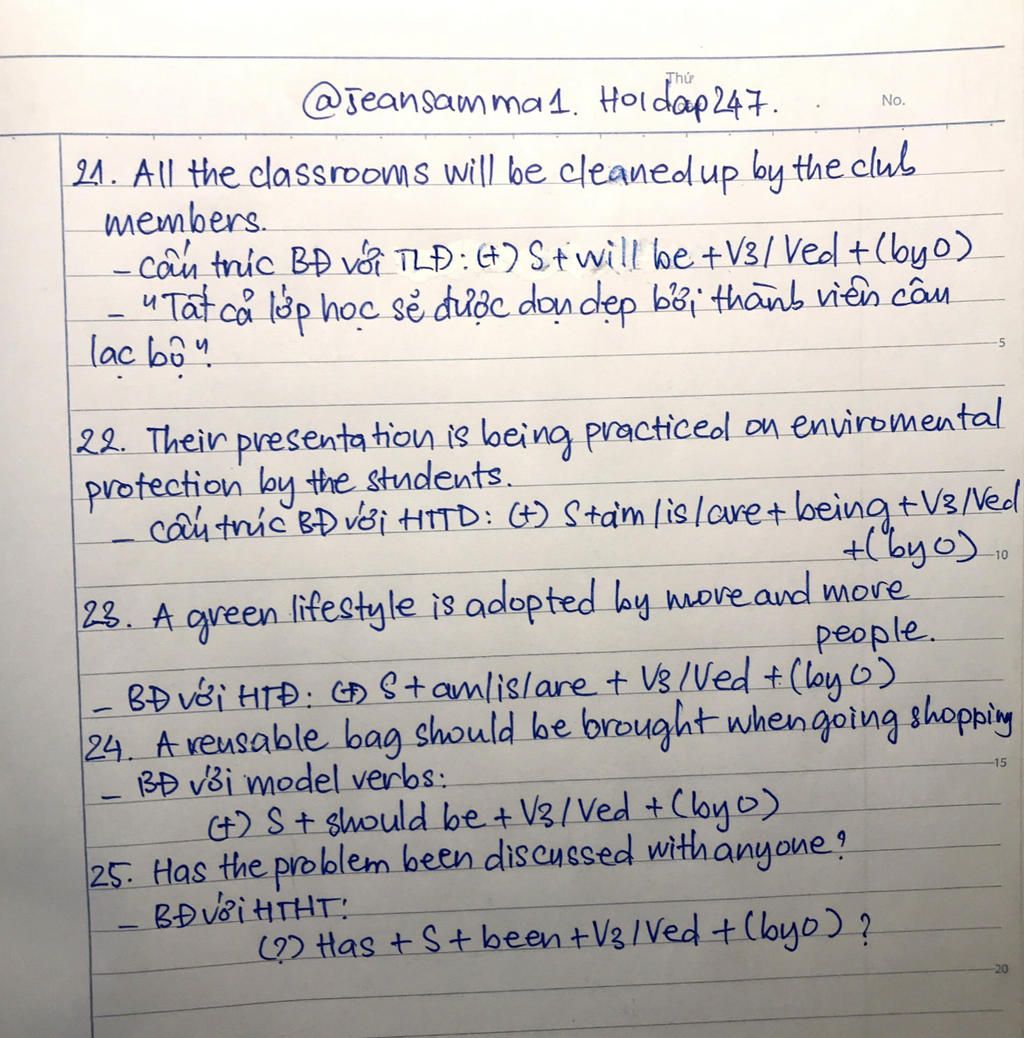 Thứ
@Jeansamma1. Hoidap247.
No.
21. All the classrooms will be cleaned up by the club
members.
- Cấu trúc BĐ với TLĐ: (+) S + will be + V3/Ved + (by O)
- "Tất cả lớp học sẽ được dọn dẹp bởi thành viên câu
lạc bộ".
5
22. Their presentation is being practiced on enviromental
protection by the students.
- Cấu trúc BĐ với HTTD: (+) S + am/is/are + being + V3/Ved
+ (by O)
10
23. A green lifestyle is adopted by more and more
people.
- BĐ với HTĐ: (+) S + am/is/are + V3/Ved + (by O)
24. A reusable bag should be brought when going shopping
15
- BĐ với model verbs:
(+) S + should be + V3/Ved + (by O)
25. Has the problem been discussed with anyone?
- BĐ với HTHT:
(?) Has + S + been + V3/Ved + (by O) ?
20